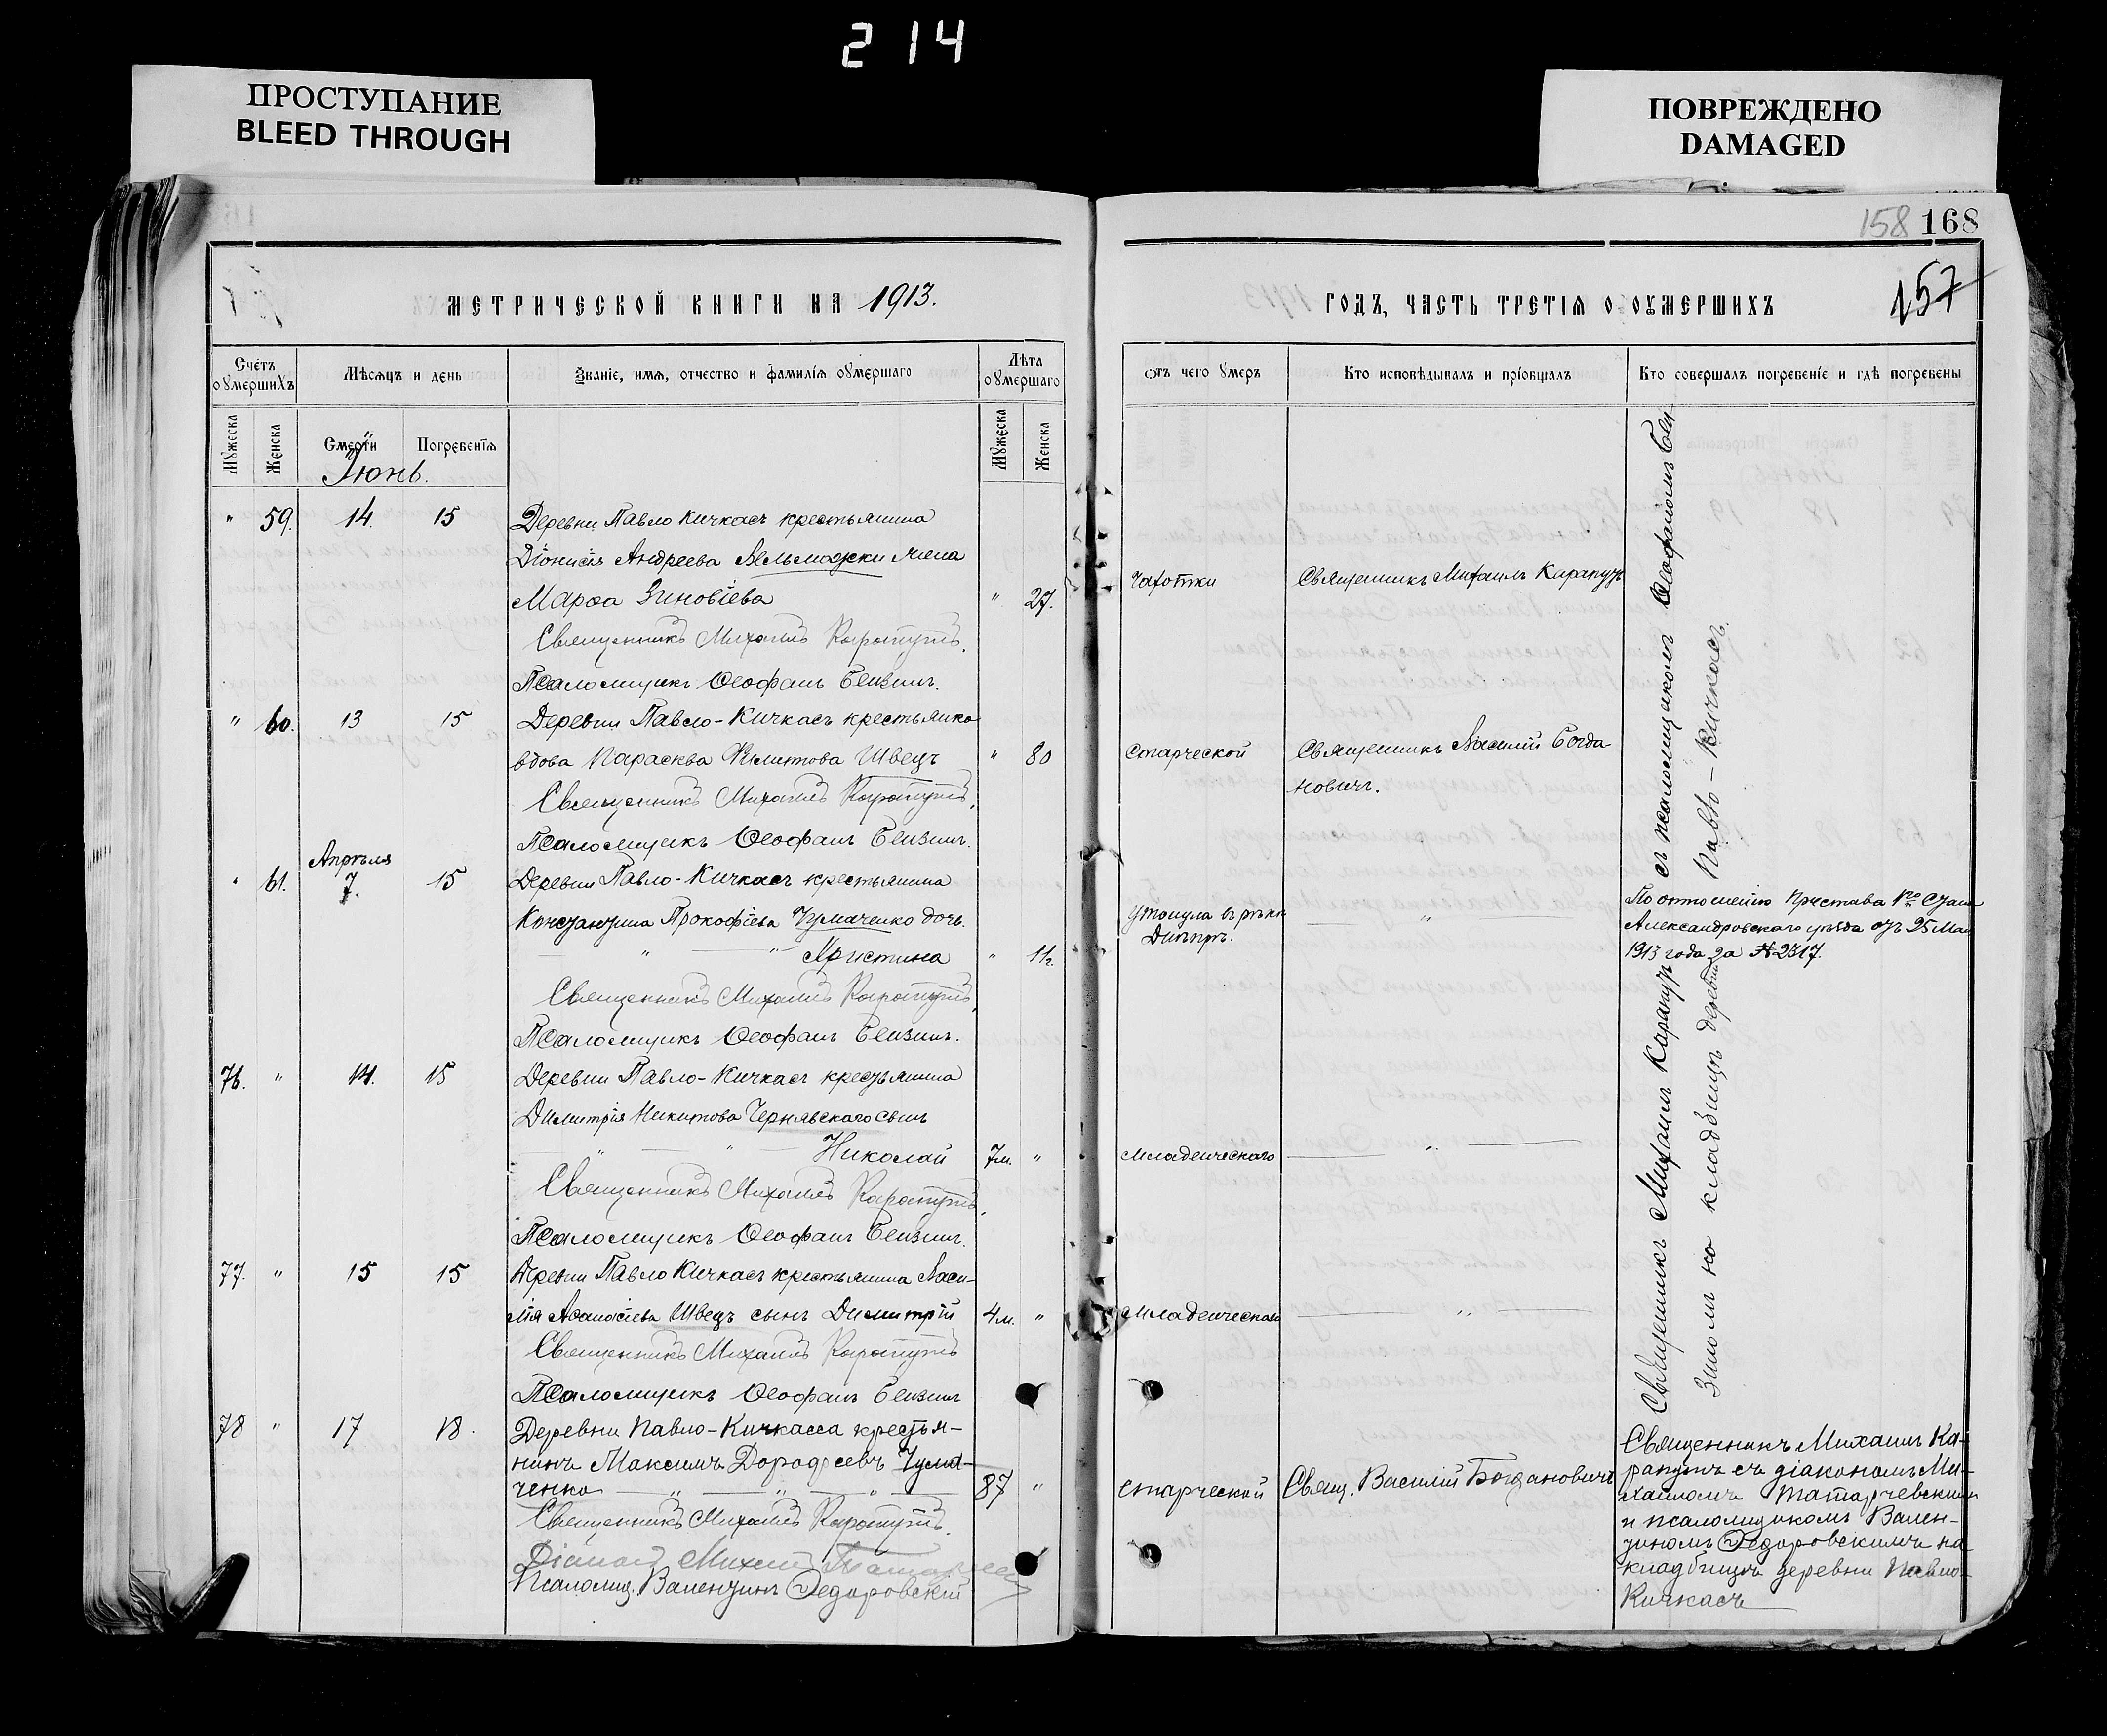 214
ПРОСТУПАНИЕ
BLEED THROUGH
ПОВРЕЖДЕНО
DAMAGED
158 168
МЕТРИЧЕСКОЙ КНИГИ НА 1913.
ГОДЪ, ЧАСТЬ ТРЕТІѦ О ОУМЕРШИХЪ
157
Счетъ оумершихъ
Мѣсѧцъ и день
Званіе, имѧ, отчество и фамиліѧ оумершаго
Лѣта оумершаго
Отъ чего умеръ
Кто исповѣдывалъ и пріобщалъ
Кто совершалъ погребеніе и гдѣ погребены
Мужеска
Женска
Смерти
Погребеніѧ
Мужеска
Женска
Іюнь.
" 59. 14. 15 Деревни Павло Кичкасъ крестьянина
Діонисія Андреева жена
Марѳа Зиновіева " 27. Чахотки Священникъ Михаилъ Карапутъ
Священникъ Михаилъ Карапутъ.
Псаломщикъ Ѳеофанъ Бензинъ.
" 60. 13 15 Деревни Павло-Кичкасъ крестьянка
вдова Параскева Филиппова Швецъ " 80 Старческой Священникъ Василій Богда
новичъ.
Священникъ Михаилъ Карапутъ.
Псаломщикъ Ѳеофанъ Бензинъ.
Апрѣля
" 61. 7. 15 Деревни Павло-Кичкасъ крестьянина
Константина Прокофіева Чумаченко дочь.
" " Христина " 11г. Утонула въ рѣкѣ
Днѣпръ. "
По отношенію Пристава 1го Стана
Александровскаго уѣзда отъ 25 Мая
1913 года за № 2317.
Священникъ Михаилъ Карапутъ
Псаломщикъ Ѳеофанъ Бензинъ.
76. " 14. 15 Деревни Павло-Кичкасъ крестьянина
Димитрія Никитова Чернявскаго сынъ
" " Николай 7м. " Младенческаго "
Священникъ Михаилъ Карапутъ.
Псаломщикъ Ѳеофанъ Бензинъ.
77. " 15 15 Деревни Павло Кичкасъ крестьянина Васи-
лія Аѳанасіева Швецъ сынъ Димитрій 4м. " Младенческаго "
Священникъ Михаилъ Карапутъ
Псаломщикъ Ѳеофанъ Бензинъ
Священникъ Михаилъ Карапутъ съ псаломщикомъ Ѳеофаномъ Бен
зиномъ на кладбищѣ деревни Павло-Кичкасъ.
78 " 17 18. Деревни Павло-Кичкасса крестья-
нинъ Максимъ Дороѳеевъ Чума-
ченко " " " 87 " Старческой Свящ. Василій Богдановичъ
Священникъ Михаилъ Карапутъ.
Діаконъ Михаилъ
Псаломщ. Валентинъ Федоровскій
Священникъ Михаилъ Ка-
рапутъ съ діакономъ Ми-
хаиломъ Татарчевскимъ
и псаломщикомъ Вален-
тиномъ Федоровскимъ на
кладбищѣ деревни Павло-
Кичкасъ